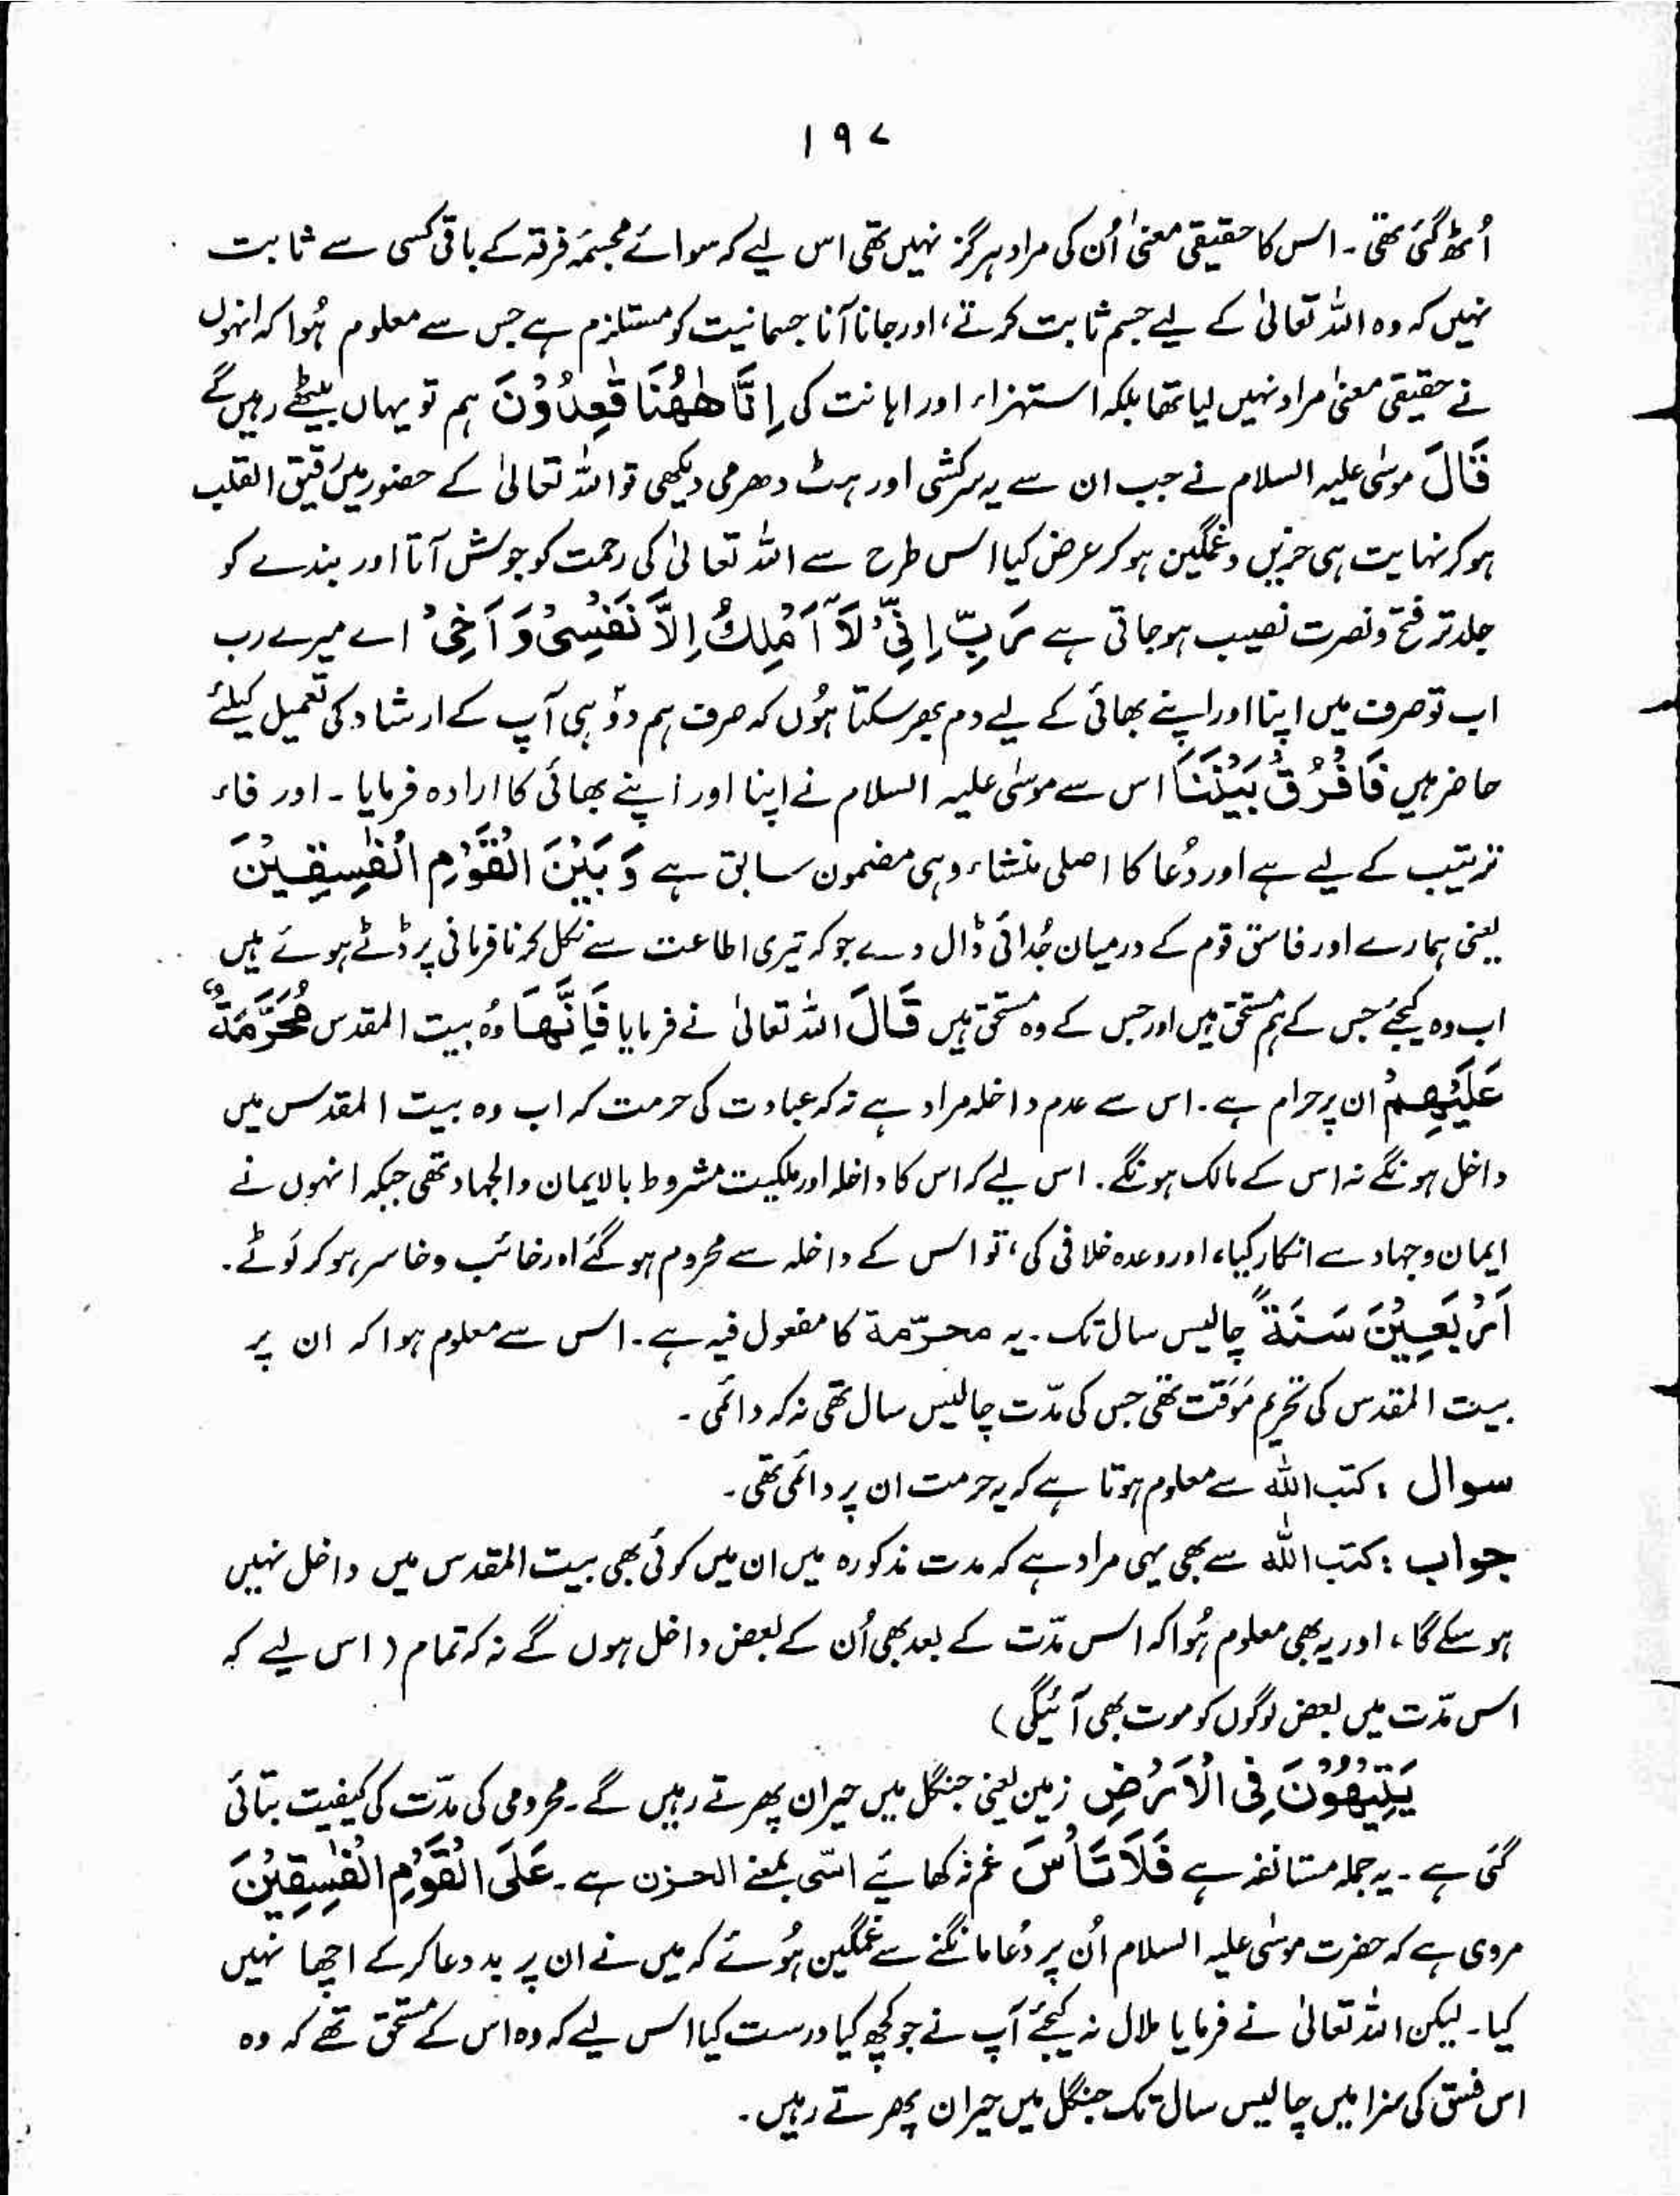 ۱۹۷
اُٹھ گئی تھی۔ اس کا حقیقی معنیٰ اُن کی مراد ہرگز نہیں تھی اس لیے کہ سوائے مجسمہ فرقہ کے باقی کسی سے ثابت
نہیں کہ وہ اللہ تعالیٰ کے لیے جسم ثابت کرتے، اور جانا آنا جسمانیت کو مستلزم ہے جس سے معلوم ہُوا کہ انہوں
نے حقیقی معنیٰ مراد نہیں لیا تھا بلکہ استہزاء اور اہانت کی اِنَّا هٰهُنَا قٰعِدُوْنَ ہم تو یہاں بیٹھے رہیں گے
قَالَ موسٰی علیہ السلام نے جب ان سے یہ سرکشی اور ہٹ دھرمی دیکھی تو اللہ تعالیٰ کے حضور میں رقیق القلب
ہو کر نہایت ہی حزیں و غمگین ہو کر عرض کیا اس طرح سے اللہ تعالیٰ کی رحمت کو جوش آتا اور بندے کو
جلد تر فتح و نصرت نصیب ہو جاتی ہے رَبِّ اِنِّیْ لَآ اَمْلِكُ اِلَّا نَفْسِیْ وَ اَخِیْ اے میرے رب
اب تو صرف میں اپنا اور اپنے بھائی کے لیے دم بھر سکتا ہُوں کہ صرف ہم دو ہی آپ کے ارشاد کی تعمیل کیلئے
حاضر ہیں فَافْرُقْ بَیْنَنَا اس سے موسٰی علیہ السلام نے اپنا اور اپنے بھائی کا ارادہ فرمایا۔ اور فاء
ترتیب کے لیے ہے اور دُعا کا اصلی منشاء وہی مضمون سابق ہے وَ بَیْنَ الْقَوْمِ الْفٰسِقِیْنَ
یعنی ہمارے اور فاسق قوم کے درمیان جُدائی ڈال دے جو کہ تیری اطاعت سے نکل کر نافرمانی پر ڈٹے ہوئے ہیں
اب وہ کیجئے جس کے ہم مستحق ہیں اور جس کے وہ مستحق ہیں قَالَ اللہ تعالیٰ نے فرمایا فَاِنَّهَا وُہ بیت المقدس مُحَرَّمَةٌ
عَلَیْهِمْ ان پر حرام ہے۔ اس سے عدم داخلہ مراد ہے نہ کہ عبادت کی حرمت کہ اب وہ بیت المقدس میں
داخل ہونگے نہ اس کے مالک ہونگے۔ اس لیے کہ اس کا داخلہ اور ملکیت مشروط بالایمان والجہاد تھی جبکہ انہوں نے
ایمان و جہاد سے انکار کیا، اور وعدہ خلافی کی، تو اس کے داخلہ سے محروم ہو گئے اور خائب و خاسر ہو کر لَوٹے۔
اَرْبَعِیْنَ سَنَةً چالیس سال تک۔ یہ محرّمة کا مفعول فیہ ہے۔ اس سے معلوم ہوا کہ ان پر
بیت المقدس کی تحریم مؤقت تھی جس کی مدّت چالیس سال تھی نہ کہ دائمی۔
سوال : کتب اللہ سے معلوم ہوتا ہے کہ یہ حرمت ان پر دائمی تھی۔
جواب : کتب اللہ سے بھی یہی مراد ہے کہ مدت مذکورہ میں ان میں کوئی بھی بیت المقدس میں داخل نہیں
ہو سکے گا، اور یہ بھی معلوم ہُوا کہ اس مدّت کے بعد بھی اُن کے بعض داخل ہوں گے نہ کہ تمام (اس لیے کہ
اس مدّت میں بعض لوگوں کو موت بھی آئیگی)
یَتِیْهُوْنَ فِی الْاَرْضِ زمین یعنی جنگل میں حیران پھرتے رہیں گے۔ محرومی کی مدّت کی کیفیت بتائی
گئی ہے۔ یہ جملہ مستانفہ ہے فَلَا تَاْسَ غم نہ کھائیے اسّی بمعنے الحزن ہے۔ عَلَی الْقَوْمِ الْفٰسِقِیْنَ
مروی ہے کہ حضرت موسٰی علیہ السلام اُن پر دُعا مانگنے سے غمگین ہُوئے کہ میں نے ان پر بد دعا کر کے اچھا نہیں
کیا۔ لیکن اللہ تعالیٰ نے فرمایا ملال نہ کیجئے آپ نے جو کچھ کیا درست کیا اس لیے کہ وہ اس کے مستحق تھے کہ وہ
اس فسق کی سزا میں چالیس سال تک جنگل میں حیران پھرتے رہیں۔